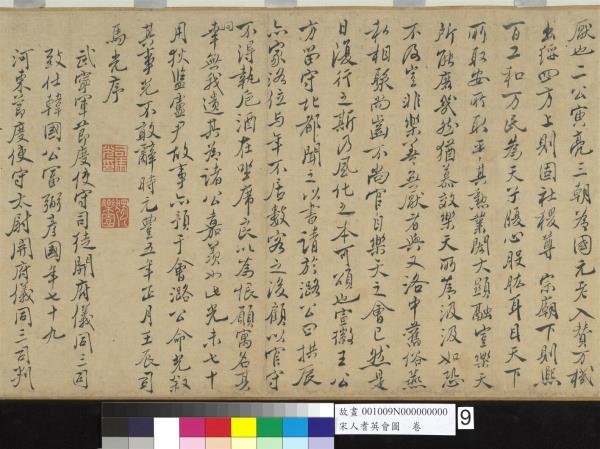 厭也二公寅亮三朝為國元老入贊萬機
出綏四方上則固社稷尊宗廟下則熙
百工和万民為天子腹心股肱耳目天下
所取安所取平其勲業閎大顯融豈樂天
所能庶幾然猶慕效樂天所為汲汲如恐
不及豈非樂善無厭者與又洛中舊俗燕
私相聚尚齒不尚官自樂天之會已然是
日復行之斯乃風化之本可頌也宣徽王公
方留守北都聞之以書請於潞公曰拱辰
亦家洛位与年不居數客之後顧以官守
不得執卮酒在坐席良以為恨願寓名其
間幸無我遺其為諸公嘉羨如此光未七十
用狄監盧尹故事亦預于會潞公命光敘
其事光不敢辭時元豐五年正月壬辰司
馬光序
武寧軍節度使守司徒開府儀同三司
致仕韓國公富弼彥國年七十九
河東節度使守太尉開府儀同三司判
故畫 001009N000000000
宋人耆英會圖 卷
9